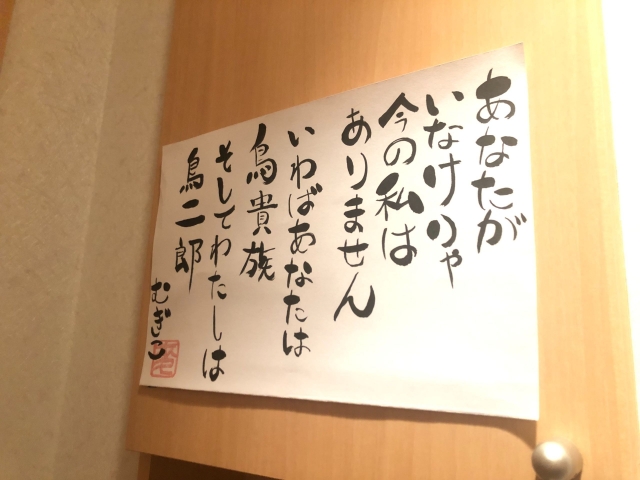 あなたが
いなけりゃ
今の私は
ありません
いわばあなたは
鳥貴族
そしてわたしは
鳥二郎
むぎこ